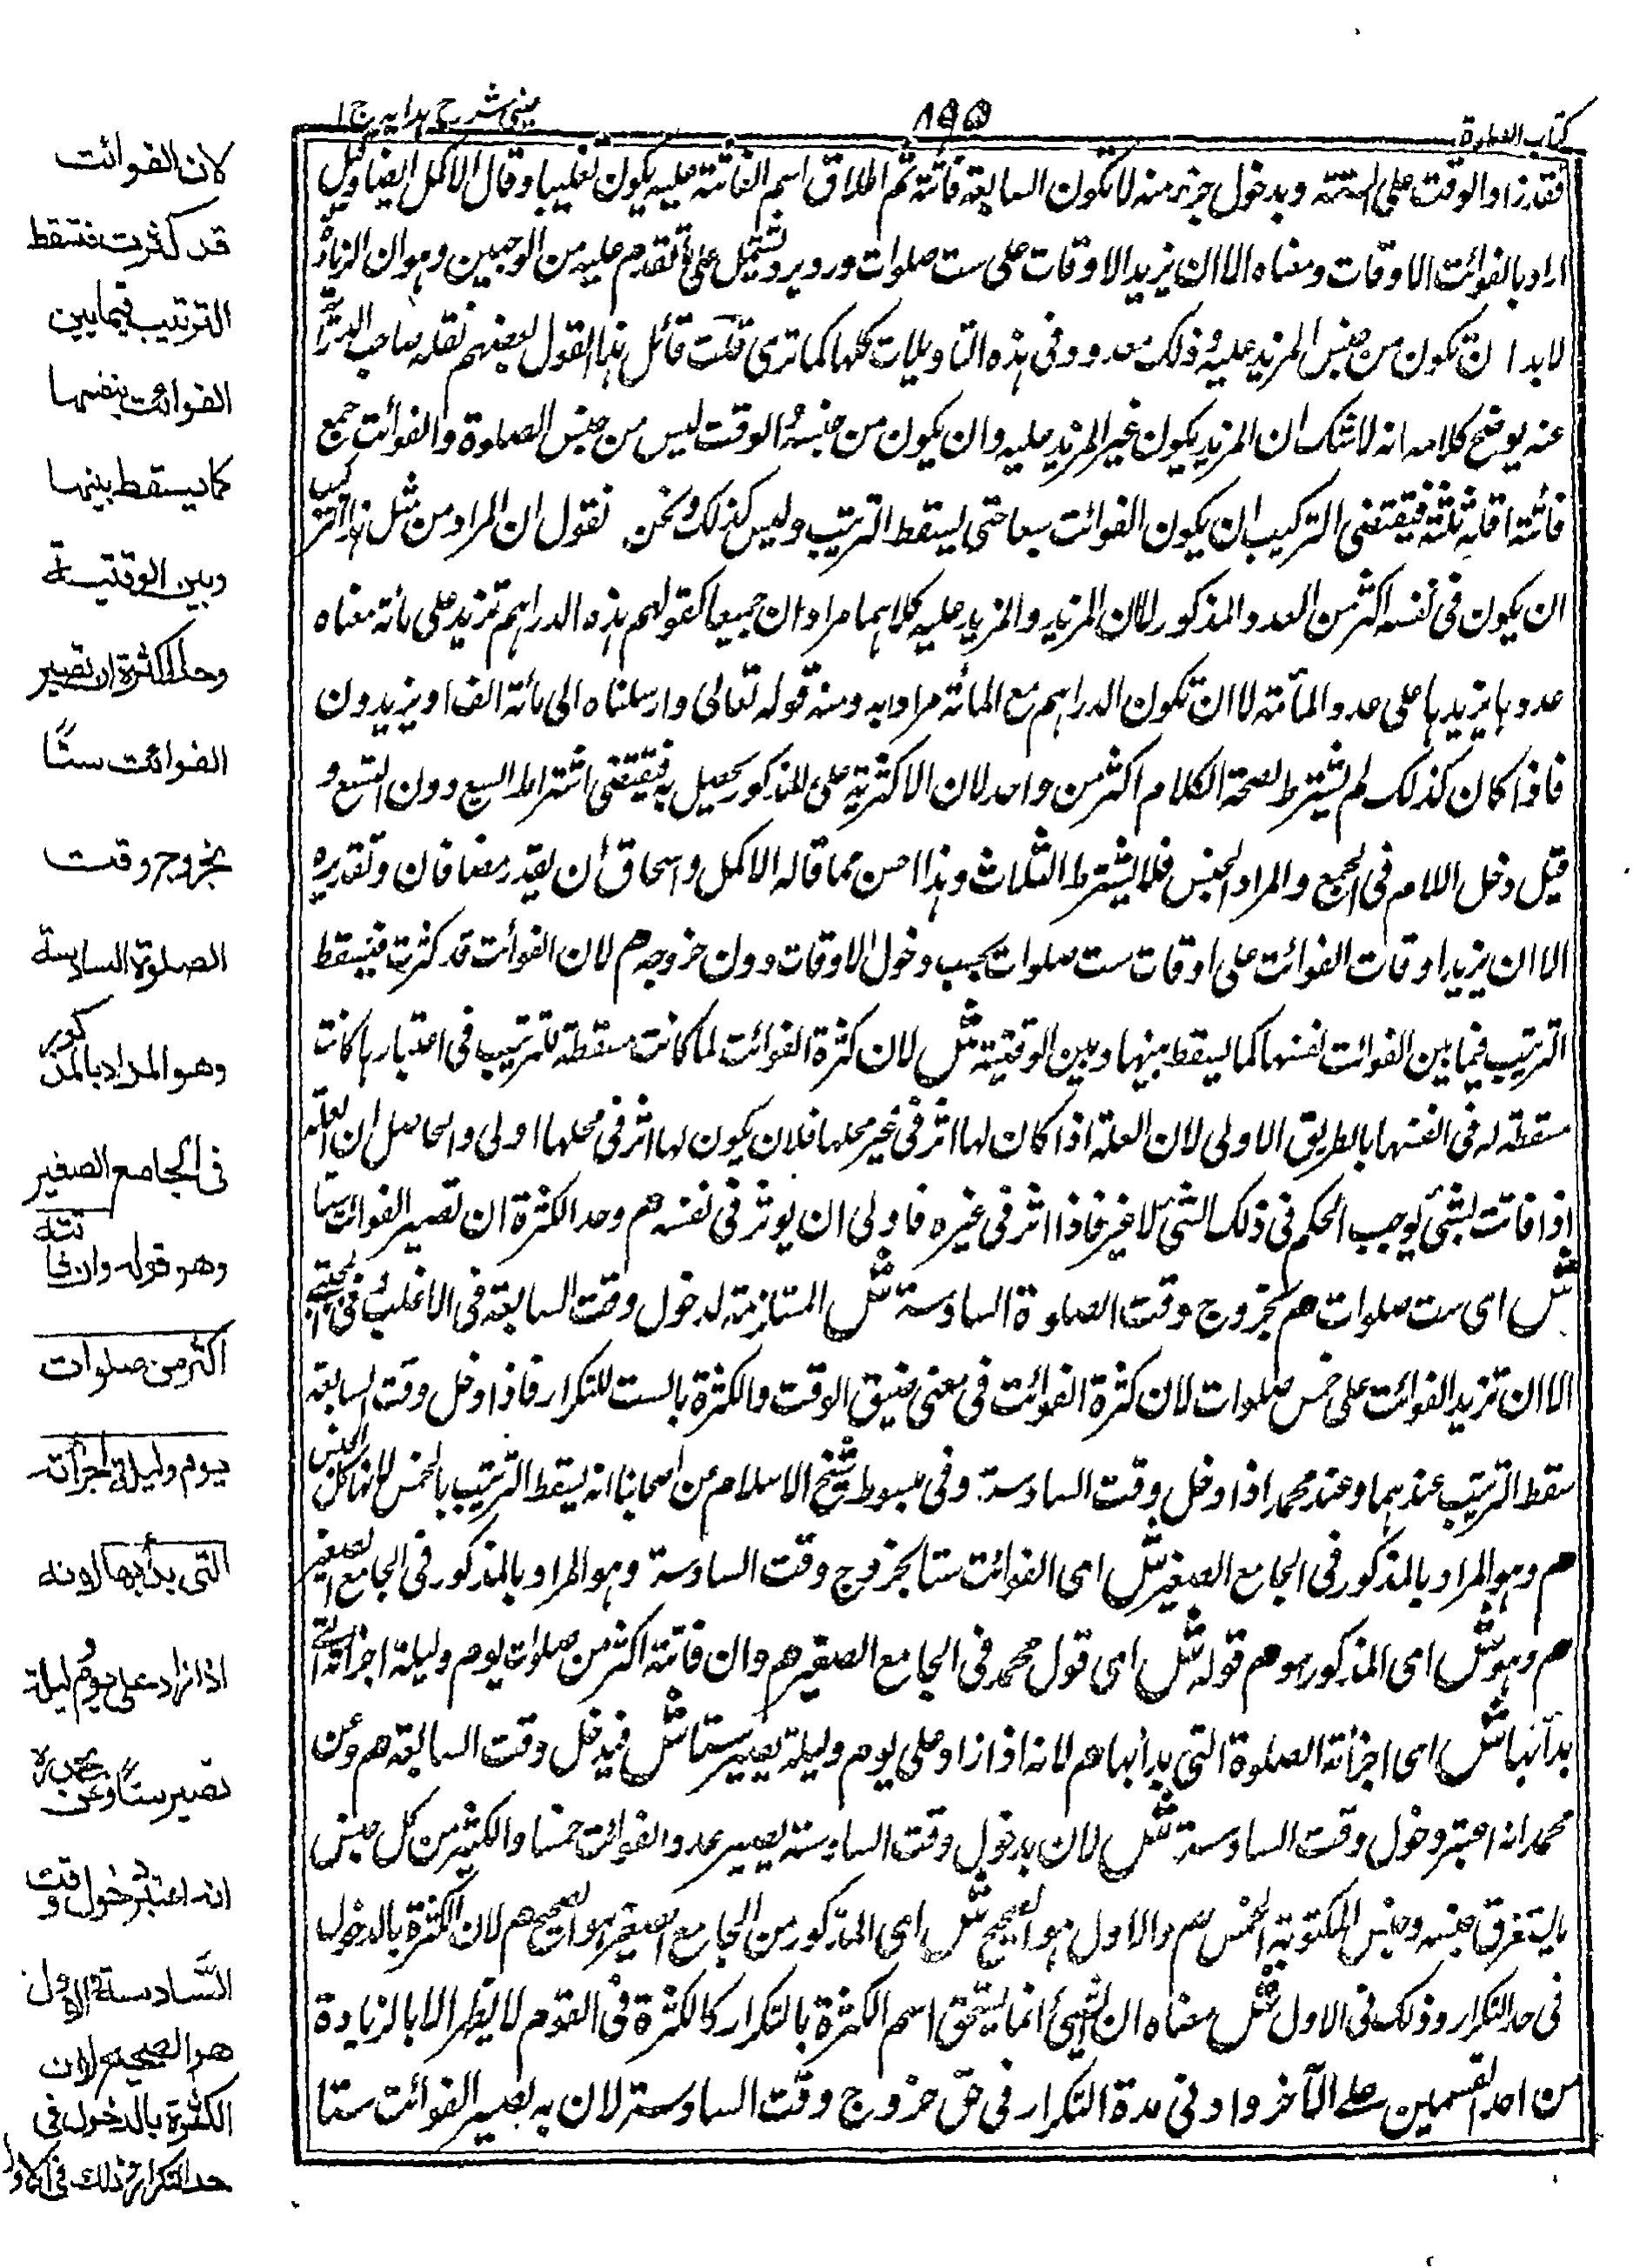 كتاب الصلوة
٨٩٥
عينى شرح هدايه ج ا
فقد زاد الوقت على الستة وبدخول جزء منه لا تكون السابعة فائتة ثم اطلاق اسم الفائتة عليه يكون تغليبا وقال الاكمل ايضا وقيل
اراد بالفوائت الاوقات ومعناه الا ان يزيد الاوقات على ست صلوات ورويرد تشتمل على ما تقدم عليه من الوجهين وهو ان الزيادة
لا بد ان تكون من جنس المزيد عليه وذلك معدود فى هذه التاويلات كلها كما ترى قلت قائل هذا القول بعضهم نقله صاحب الدراية
عنه يوضح كلامه انه لا شك ان المزيد يكون غير المزيد عليه وان يكون من جنسه والوقت ليس من جنس الصلوة والفوائت جمع
فائتة اقله ثلثة فيقتضى التركيب ان يكون الفوائت سبعا حتى يسقط الترتيب وليس كذلك ونحن نقول ان المراد من مثل هذا التركيب
ان يكون فى نفسه اكثر من العدد المذكور لا ان المزيد والمزيد عليه كلاهما مرادان جميعا كقولهم هذه الدراهم تزيد على مائة معناه
عددها يزيدها على عدد المائة لا ان تكون الدراهم مع المائة مرادا به ومنه قوله تعالى وارسلناه الى مائة الف او يزيدون
فاذا كان كذلك لم يشترط لصحة الكلام اكثر من واحد لان الاكثرية على المذكور يحصل به فيقتضى اشتراط السبع دون التسع و
قيل دخل اللام فى الجمع والمراد الجنس فلا يشترط الثلاث وهذا احسن مما قاله الاكمل واسحاق ان يقدر مضافان وتقديره
الا ان يزيد اوقات الفوائت على اوقات ست صلوات بحسب دخول الاوقات دون خروجها م لان الفوائت قد كثرت فيسقط
الترتيب فيما بين الفوائت نفسها كما يسقط بينها وبين الوقتية ش لان كثرة الفوائت لما كانت مسقطة للترتيب فى اعتبارها كانت
مسقطة له فى انفسها بالطريق الاولى لان العلة اذا كان لها اثر فى غير محلها فلان يكون لها اثر فى محلها اولى والحاصل ان العلة
اذا قامت بشئ يوجب الحكم فى ذلك الشئ لا غير فاذا اثر فى غيره فاولى ان يوثر فى نفسه م وحد الكثرة ان تصير الفوائت ستا
ش اى ست صلوات م بخروج وقت الصلوة السادسة ش المستلزمة لدخول وقت السابعة فى الاغلب وفى المجتبى
الا ان تزيد الفوائت على خمس صلوات لان كثرة الفوائت فى معنى ضيق الوقت والكثرة بالست للتكرار فاذا دخل وقت السابعة
سقط الترتيب عندهما وعند محمد اذا دخل وقت السادسة وفى مبسوط شيخ الاسلام عن اصحابنا انه يسقط الترتيب بالخمس لانها كل الجنس
م وهو المراد بالمذكور فى الجامع الصغير ش اى الفوائت ستا بخروج وقت السادسة وهو المراد بالمذكور فى الجامع الصغير
م وهو ش اى المذكور هو م قوله ش اى قول محمد فى الجامع الصغير م وان فاتته اكثر من صلوات يوم وليلة اجزأته التى
بدأ بها ش اى اجزأته الصلوة التى بدأ بها م لانه اذا زاد على يوم وليلة يصير ستا ش فيدخل وقت السابعة م وعن
محمد انه اعتبر دخول وقت السادسة ش لان بدخول وقت السادسة يصير عدد الفوائت خمسا والكثير من كل جنس
ما يستغرق جنسه وجنس المكتوبة الخمس م والاول هو الصحيح ش اى المذكور من الجامع الصغير هو الصحيح م لان الكثرة بالدخول
فى حد التكرار وذلك فى الاول ش معناه ان الشئ انما يستحق اسم الكثرة بالتكرار كالكثرة فى القوم لا يظهر الا بالزيادة
من احد القسمين على الآخر وادنى مدة التكرار فى حق خروج وقت السادسة لان به يصير الفوائت ستا
لان الفوائت
قد كثرت فتسقط
الترتيب فيما بين
الفوائت بنفسها
كما يسقط بينها
وبين الوقتية
وحد الكثرة ان تصير
الفوائت ستًا
بخروج وقت
الصلوة السادسة
وهو المراد بالمذكور
فى الجامع الصغير
وهو قوله وان فاتته
اكثر من صلوات
يوم وليلة اجزأته
التى بدأ بها لانه
اذا زاد على يوم وليلة
تصير ستًا وعن محمد رح
انه اعتبر دخول وقت
السَّادسة والاول
هو الصحيح لان
الكثرة بالدخول فى
حد التكرار وذلك فى الاول